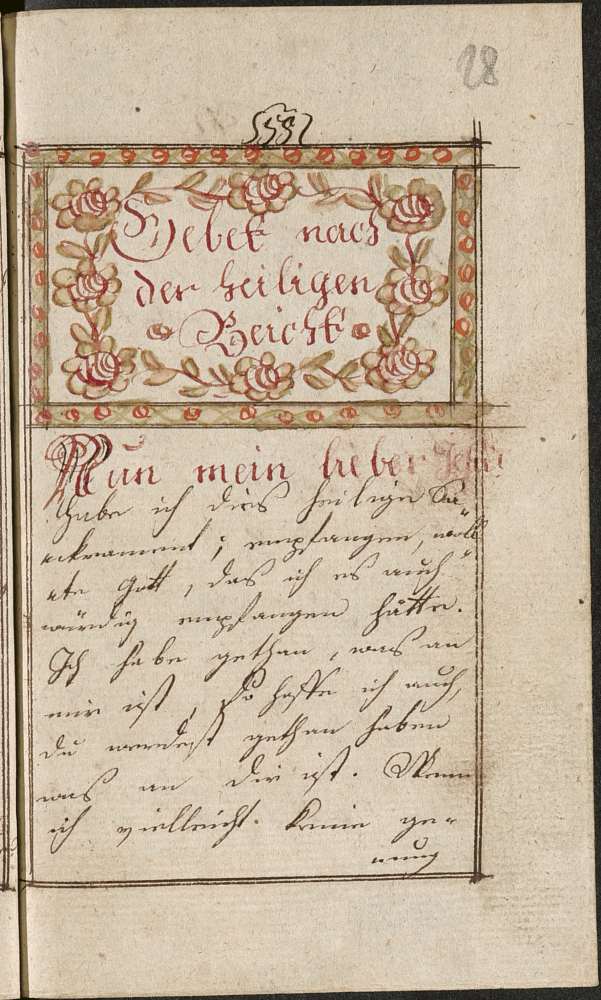 28
55
Gebet nach
der heiligen
Beicht
Nun mein lieber Jesu
habe ich dies heilige Sa⸗
ckrament, empfangen, woll⸗
te Gott, das ich es auch
würdig empfangen hätte.
Ich habe gethan, was an
mir ist, so hoffe ich auch,
du werdest gethan haben
was an dir ist. Wenn
ich vielleicht keine ge⸗
nung